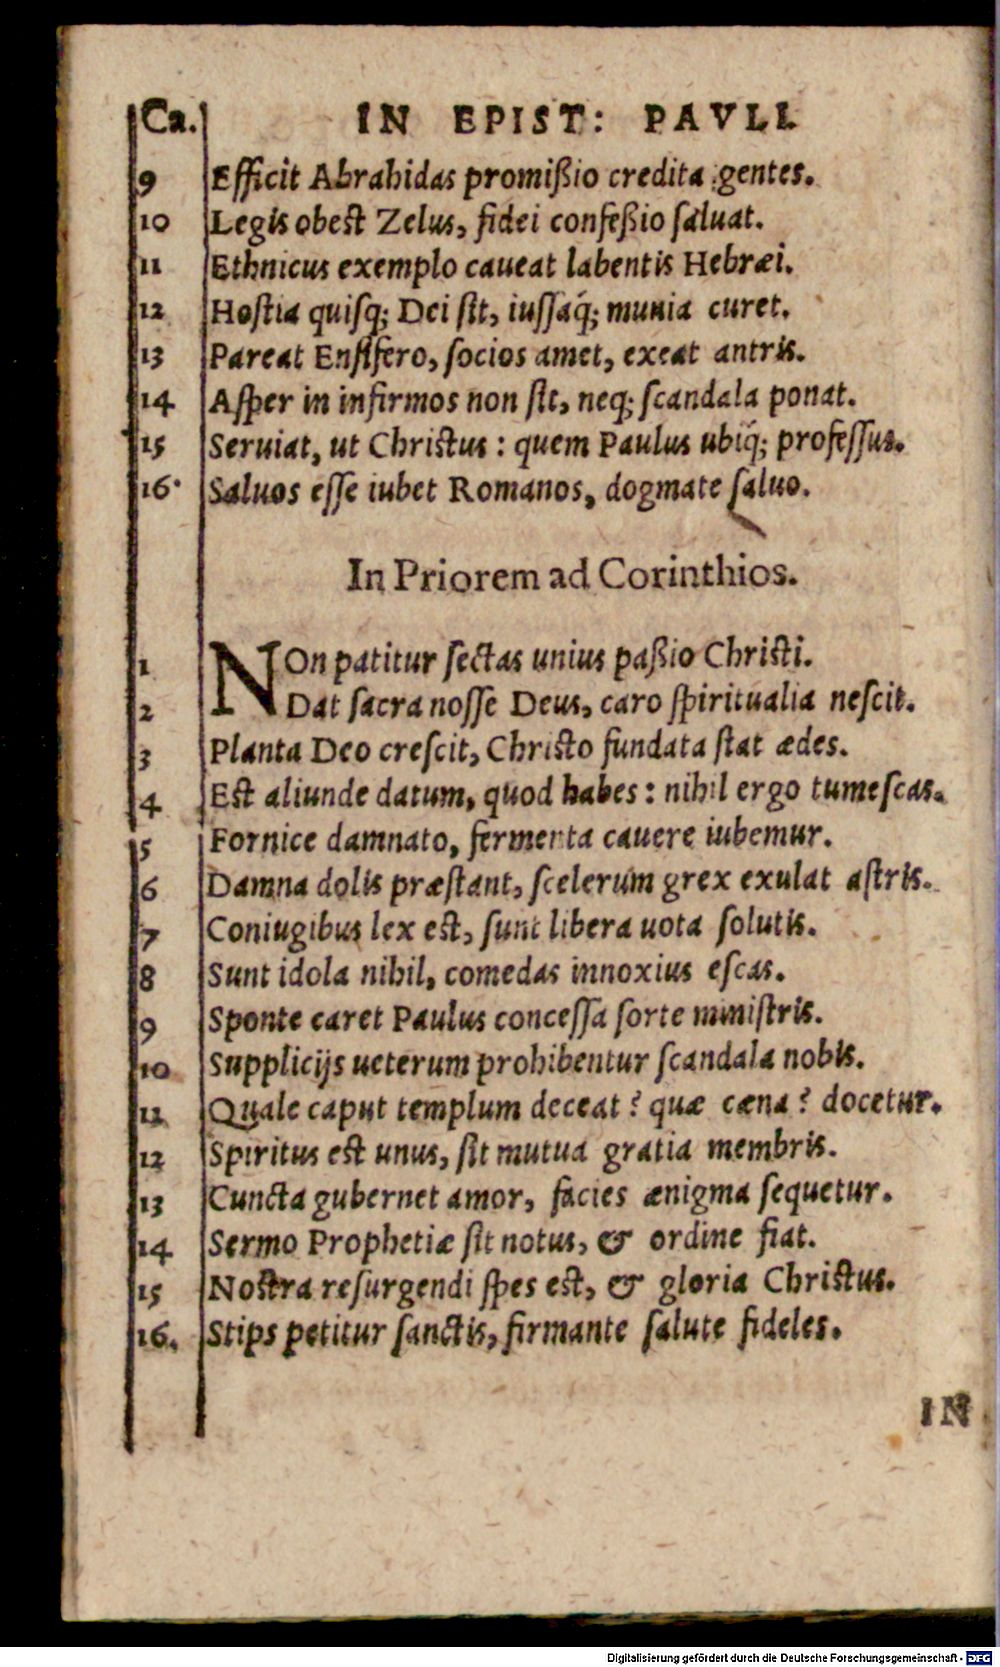 Ca. IN EPIST: PAVLI
9 Efficit Abrahidas promißio credita gentes.
10 Legis obest Zelus, fidei confeßio saluat.
11 Ethnicus exemplo caueat labentis Hebræi.
12 Hostia quisq; Dei sit, iussaq́; munia curet.
13 Pareat Ensifero, socios amet, exeat antris.
14 Asper in infirmos non sit, neq; scandala ponat.
15 Seruiat, ut Christus: quem Paulus ubiq́; professus.
16. Saluos esse iubet Romanos, dogmate saluo.
In Priorem ad Corinthios.
1 NOn patitur sectas unius paßio Christi.
2 Dat sacra nosse Deus, caro spiritualia nescit.
3 Planta Deo crescit, Christo fundata stat ædes.
4 Est aliunde datum, quod habes: nihil ergo tumescas.
5 Fornice damnato, fermenta cauere iubemur.
6 Damna dolis præstant, scelerum grex exulat astris.
7 Coniugibus lex est, sunt libera uota solutis.
8 Sunt idola nihil, comedas innoxius escas.
9 Sponte caret Paulus concessa sorte ministris.
10 Supplicijs ueterum prohibentur scandala nobis.
11 Quale caput templum deceat? quæ cæna? docetur.
12 Spiritus est unus, sit mutua gratia membris.
13 Cuncta gubernet amor, facies ænigma sequetur.
14 Sermo Prophetiæ sit notus, & ordine fiat.
15 Nostra resurgendi spes est, & gloria Christus.
16. Stips petitur sanctis, firmante salute fideles.
IN
Digitalisierung gefördert durch die Deutsche Forschungsgemeinschaft - DFG